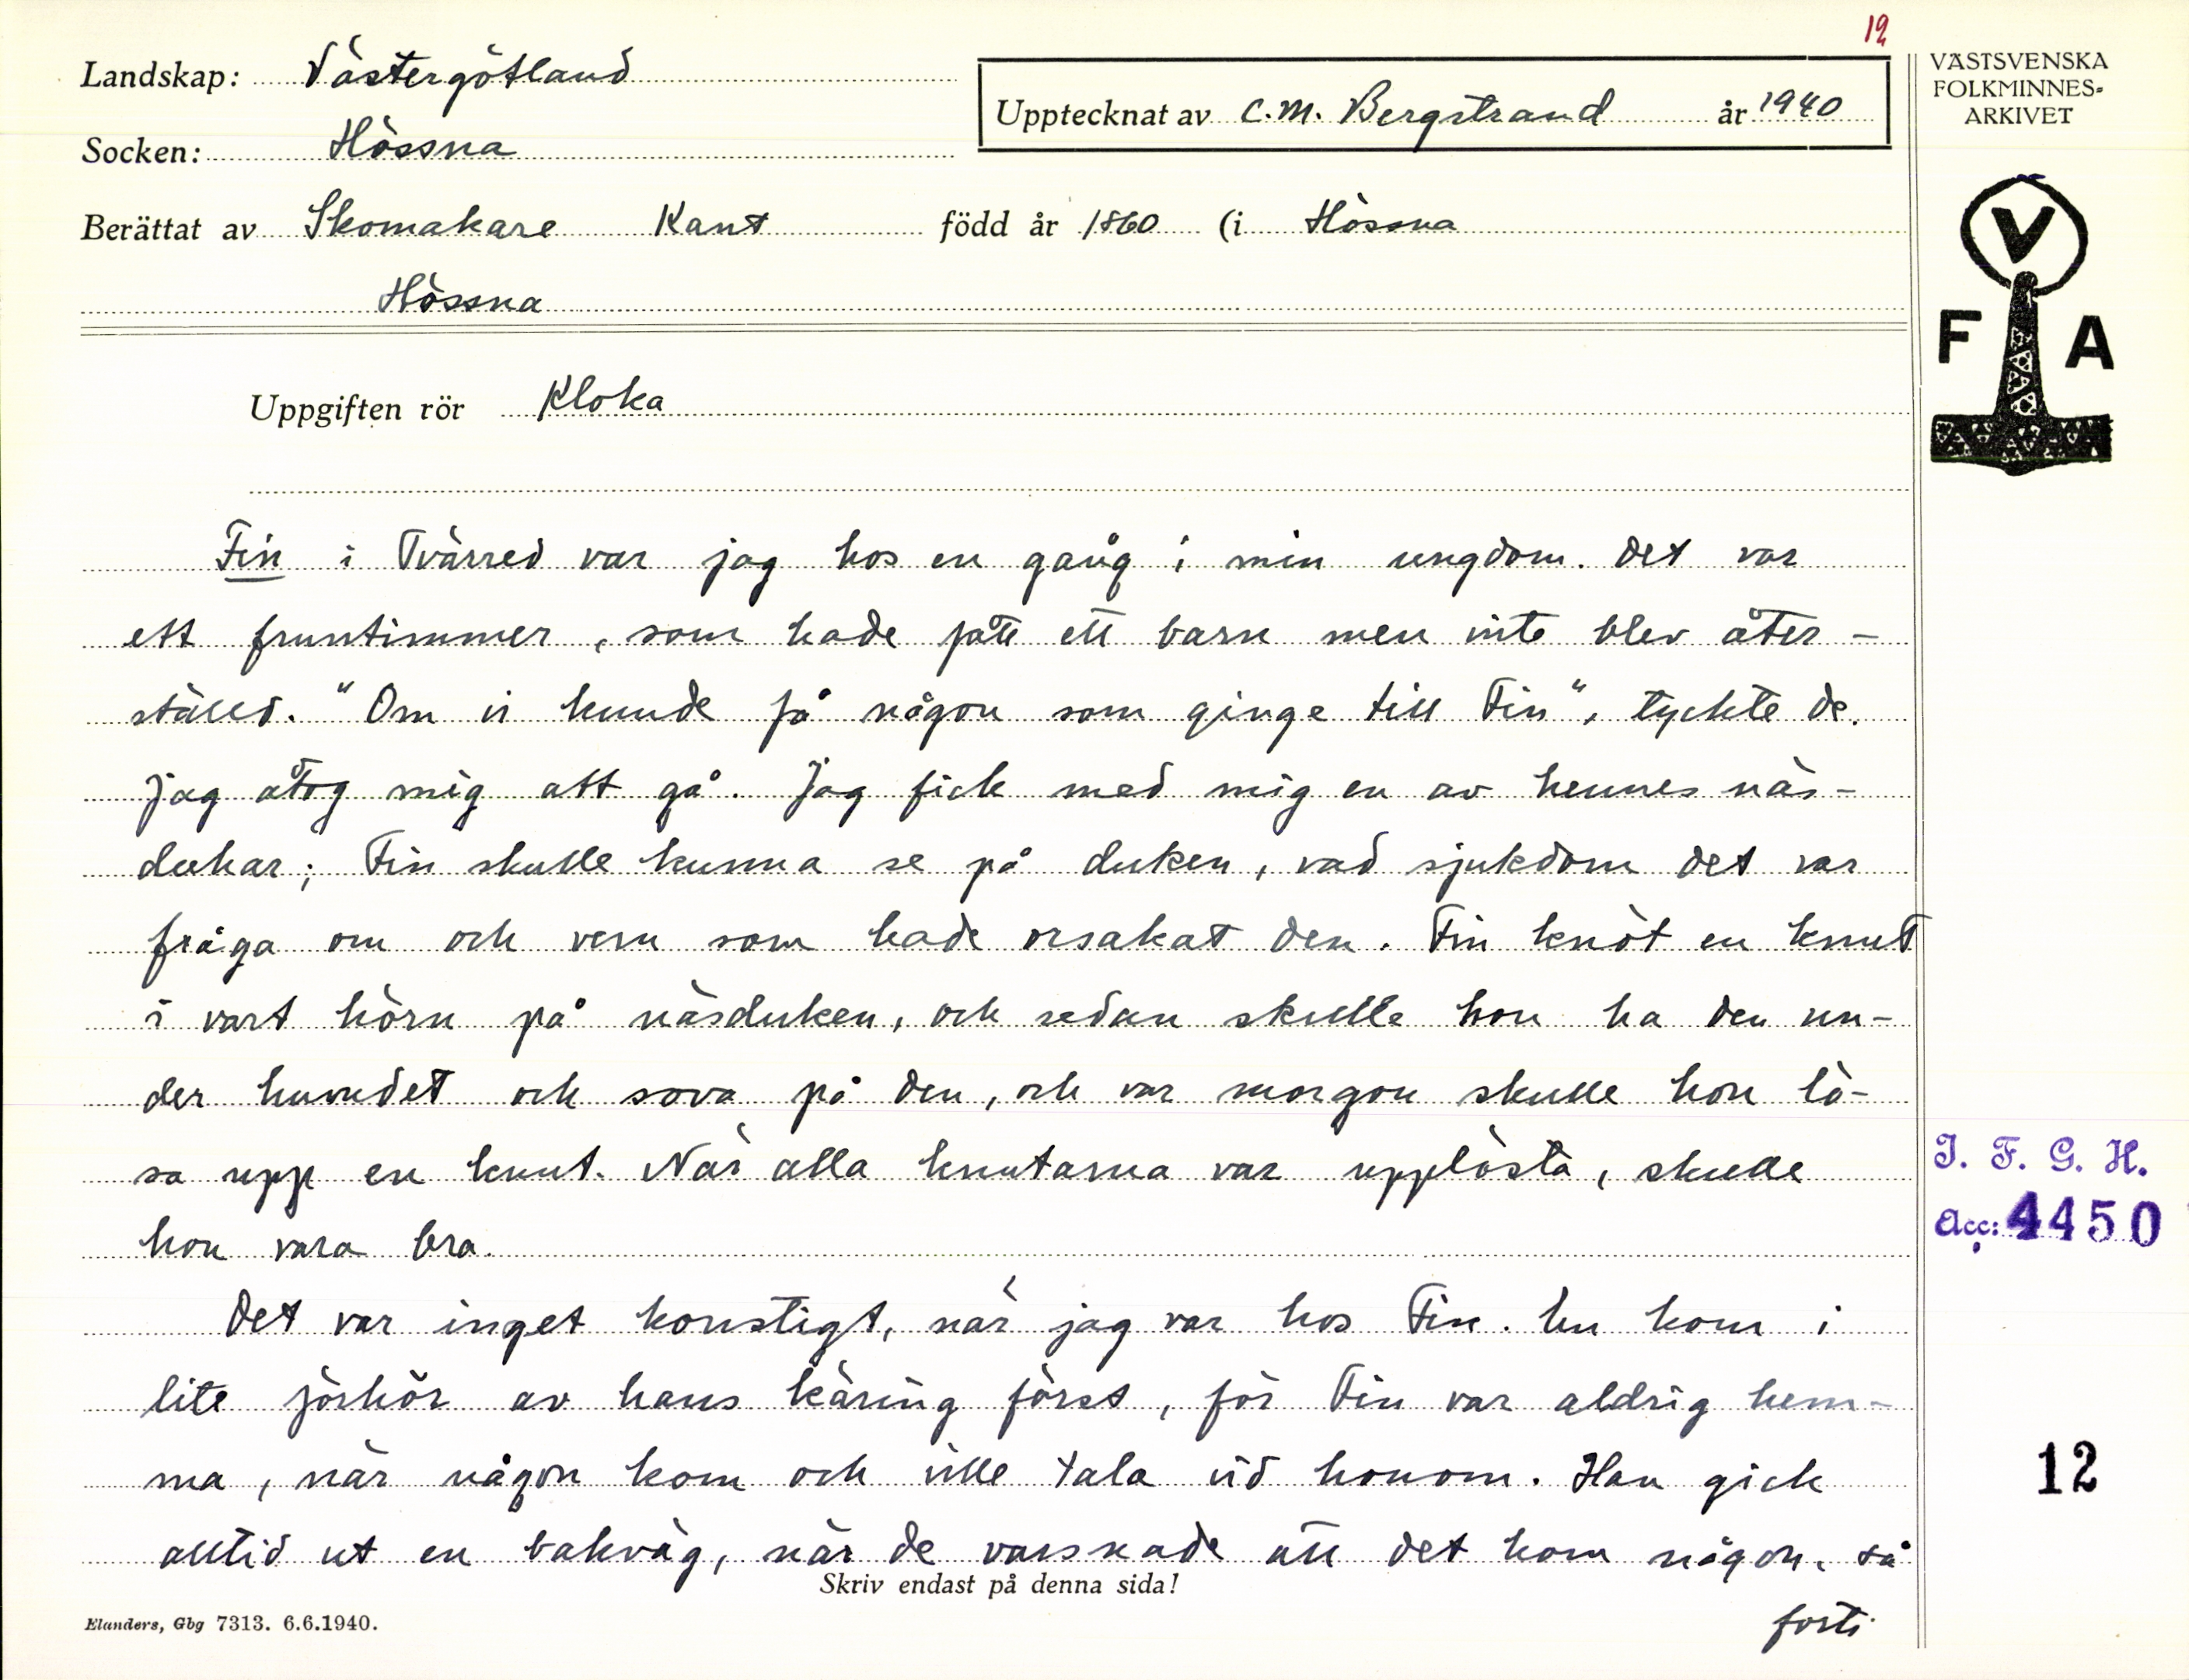 12
Landskap: Västergötland
Upptecknat av C.M. Bergstrand år 1940
VÄSTSVENSKA
FOLKMINNES-
ARKIVET
Socken: Hössna
Berättat av Skomakare Kant född år 1860 (i Hössna
Hössna
V
F A
Uppgiften rör Kloka
Fin i Tvärred var jag hos en gång i min ungdom. Det var
ett fruntimmer, som hade fått ett barn men inte blev åter-
ställd. "Om vi kunde få någon som ginge till Fin", tyckte de.
Jag åtog mig att gå. Jag fick med mig en av hennes näs-
dukar; Fin skulle kunna se på duken, vad sjukdom det var
fråga om och vem som hade orsakat den. Fin knöt en knut
i vart hörn på näsduken, och sedan skulle hon ha den un-
der huvudet och sova på den, och var morgon skulle hon lö-
sa upp en knut. När alla knutarna var upplösta, skulle
hon vara bra.
Det var inget konstigt, när jag var hos Fin. En kom i
lite förhör av hans käring först, för Fin var aldrig hem-
ma, när någon kom och ville tala vid honom. Han gick
alltid ut en bakväg, när de varsnade att det kom någon, så
Skriv endast på denna sida!
forts.
Elanders, Gbg 7313. 6.6.1940.
I. F. G. H.
Acc: 4450
12